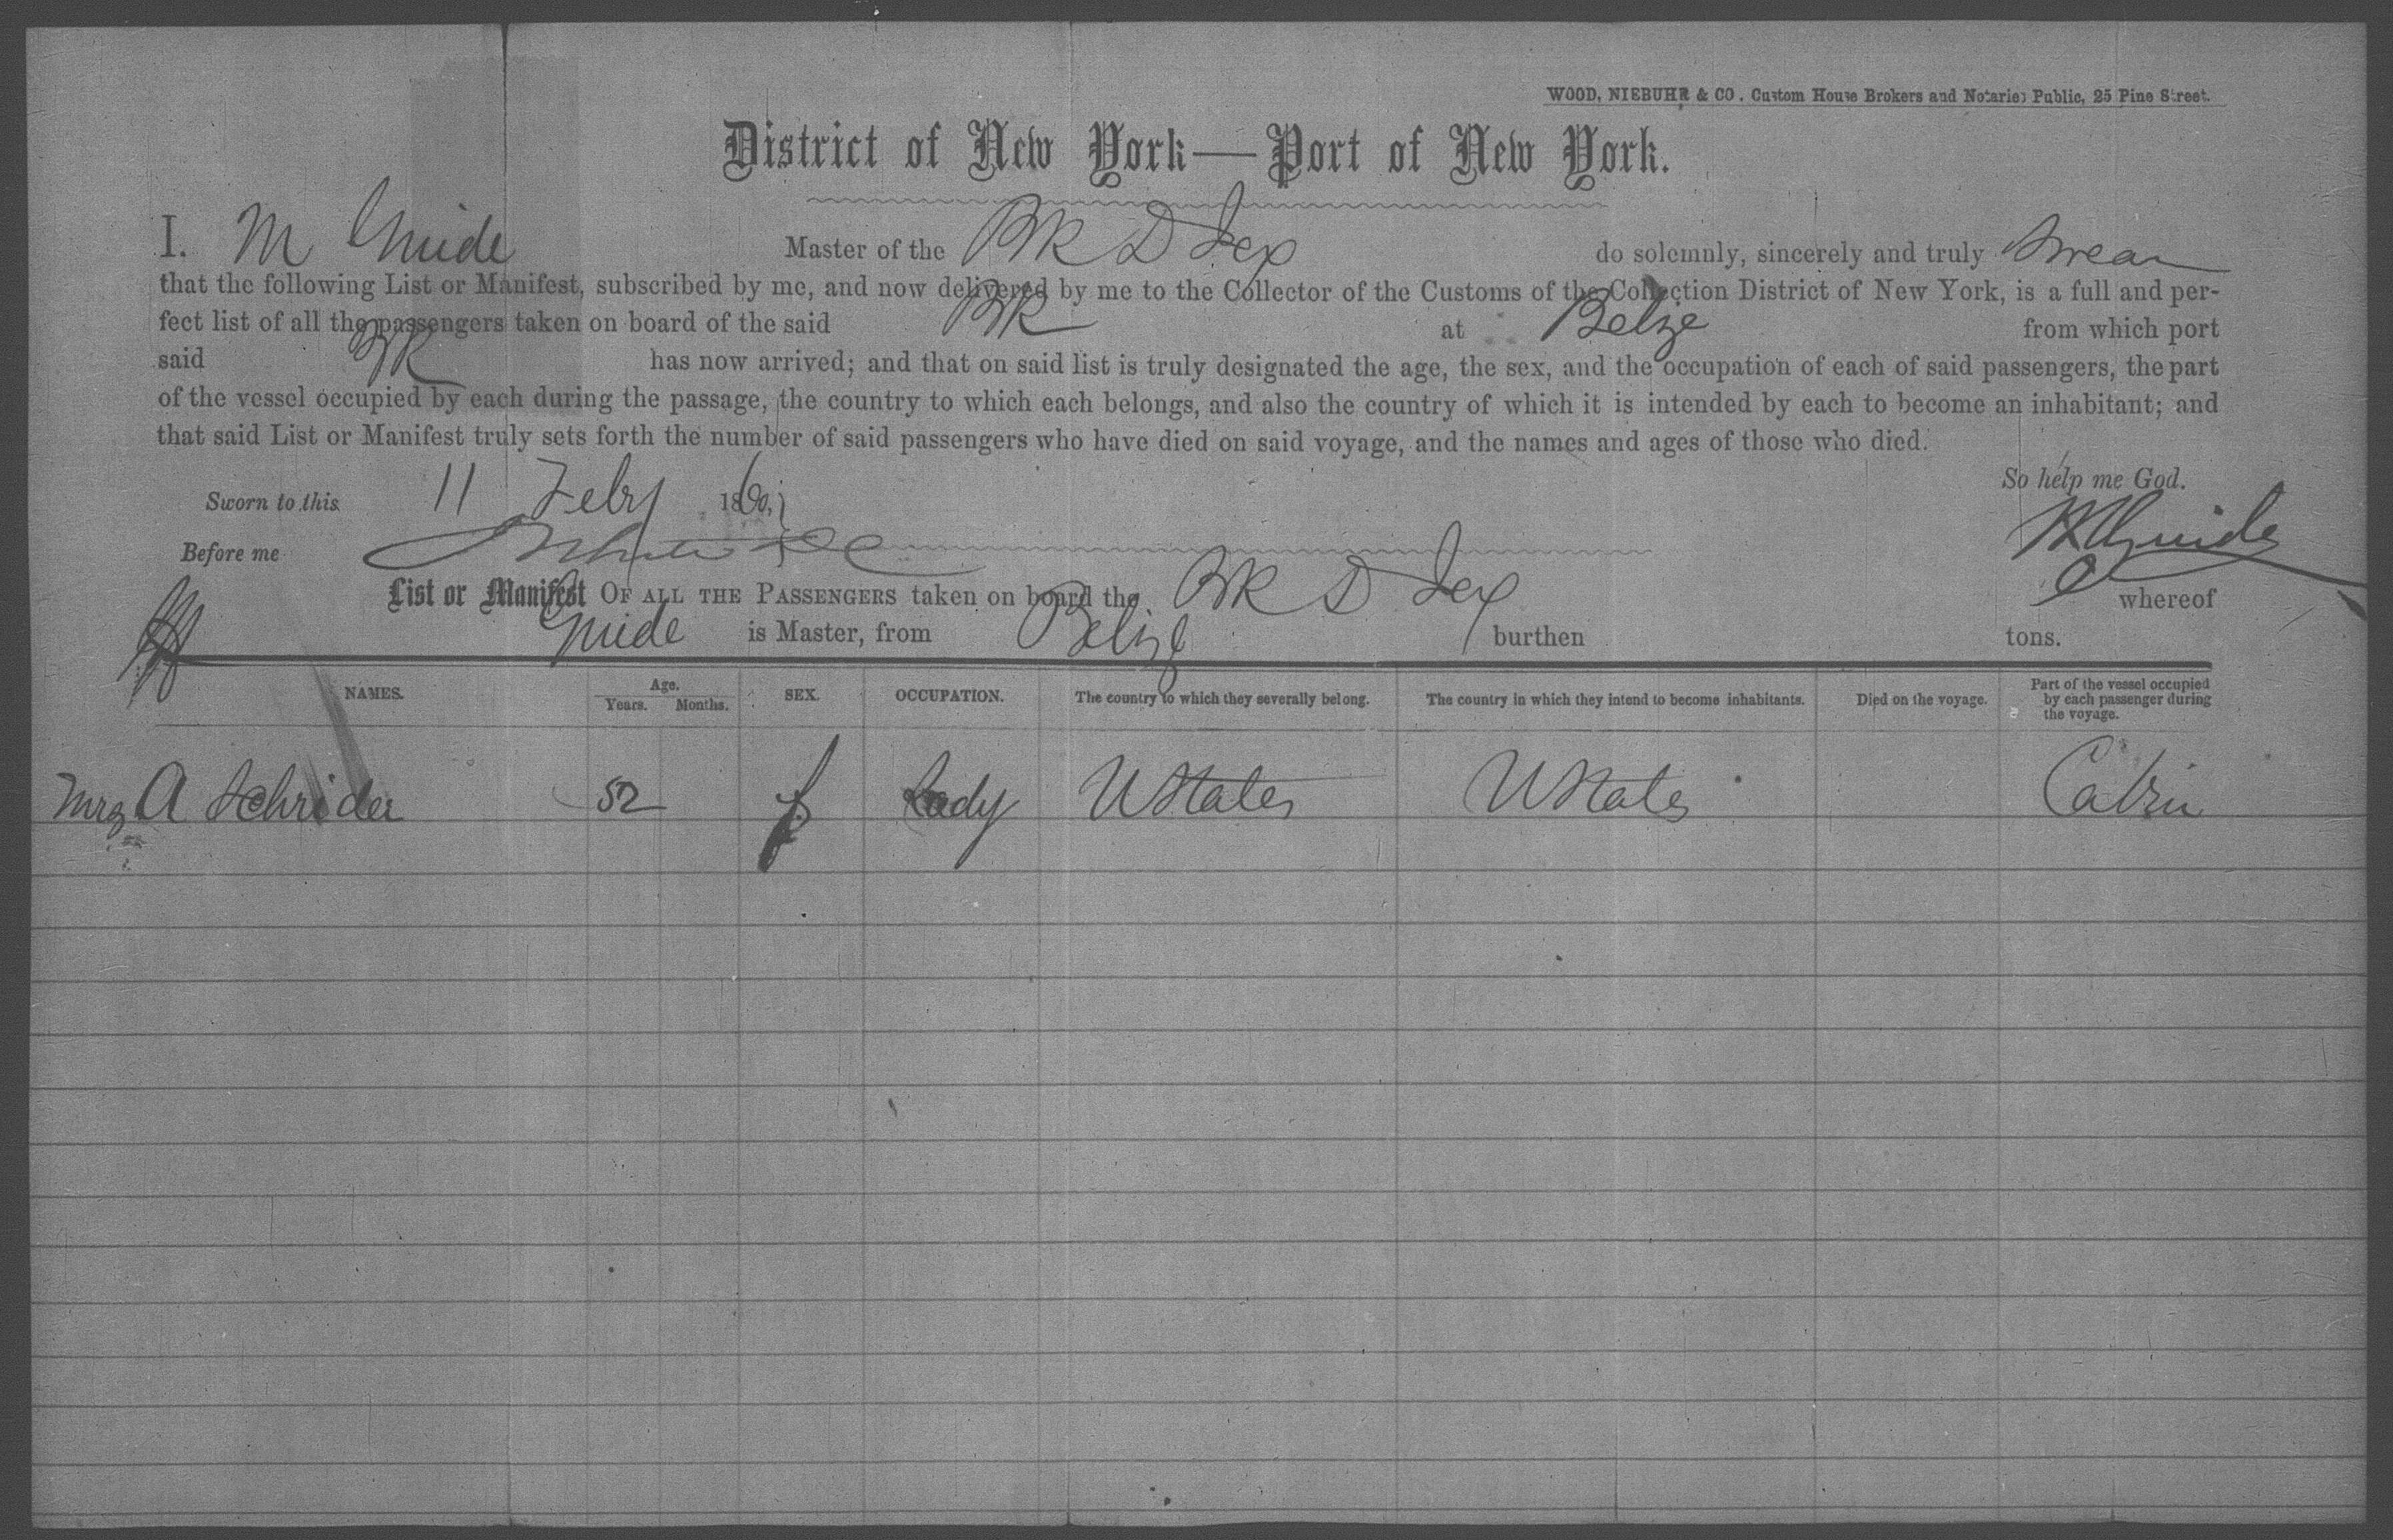 WOOD, NIEBUHR & CO. Custom House Brokers and Notaries Public, 25 Pine Street.
District of New York—Port of New York.
I. M Guide Master of the Bk D Jex do solemnly, sincerely and truly Swear
that the following List or Manifest, subscribed by me, and now delivered by me to the Collector of the Customs of the Collection District of New York, is a full and per-
fect list of all the passengers taken on board of the said Bk at Belize from which port
said Bk has now arrived; and that on said list is truly designated the age, the sex, and the occupation of each of said passengers, the part
of the vessel occupied by each during the passage, the country to which each belongs, and also the country of which it is intended by each to become an inhabitant; and
that said List or Manifest truly sets forth the number of said passengers who have died on said voyage, and the names and ages of those who died.
So help me God.
Sworn to this 11 Feby
M Guide
Before me
List or Manifest OF ALL THE PASSENGERS taken on board the Bk D Jex whereof
Guide is Master, from Belize burthen tons.
NAMES. Age. Years. Months. SEX. OCCUPATION. The country to which they severally belong. The country in which they intend to become inhabitants. Died on the voyage. Part of the vessel occupied by each passenger during the voyage.
Mrs A Schrider 52 f Lady UStates UStates Cabin